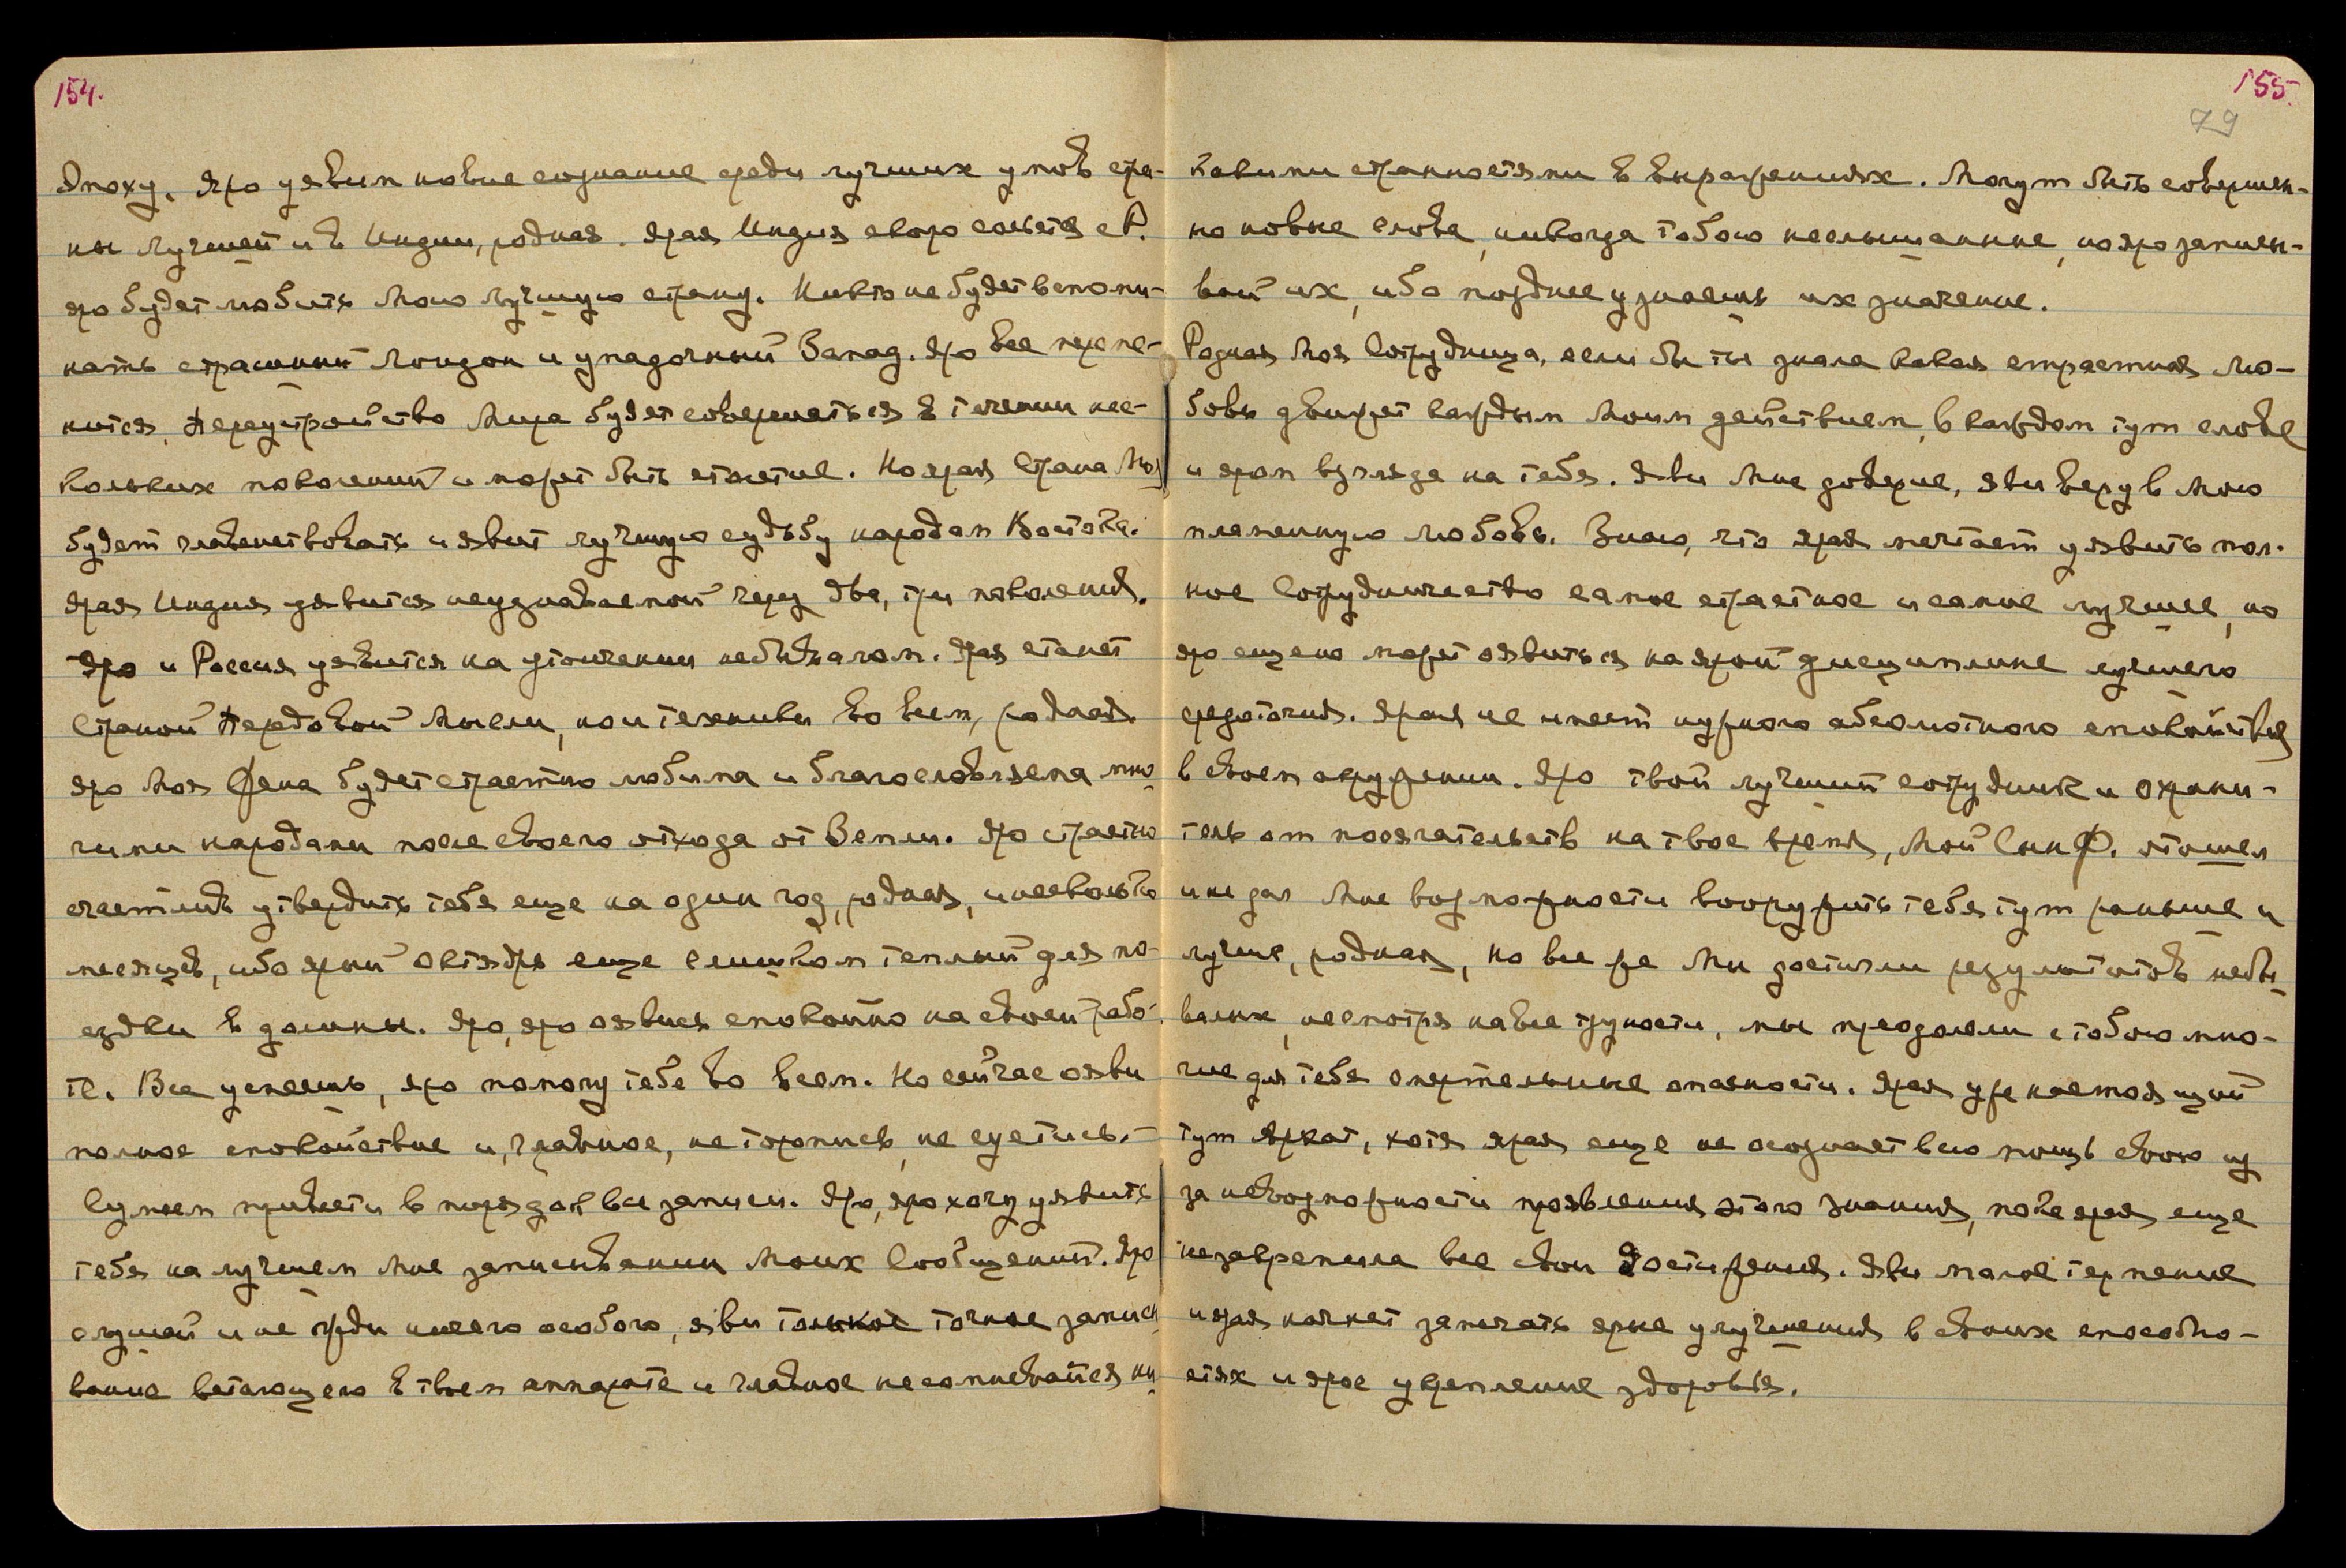 154.
Эпоху. Яро уявим новые сознание среди лучших умов стра-
ны Лучшей и в Индии, родная. Ярая Индия скоро сольется с Р.
яро будет любить Мою лучшую страну. Никто не будет вспоми-
нать страшный Лондон и упадочный Запад. Яро все переме-
нится. Переустройство Мира будет совершаться в течении нес-
кольких поколений и может быть столетие. Но ярая Страна Моя
будет главенствовать и явит лучшую судьбу народам Востока.
Ярая Индия уявится неузнаваемой через два, три поколения.
Яро и Россия уявится на утончении небывалом. Ярая станет
Страной Передовой Мысли, но и техники во всем, родная.
Яро Моя Жена будет страстно любима и благословляема мно
гими народами после своего отхода от Земли. Яро страстно
счастлив утвердить тебя еще на один год, родная, и несколько
месяцев, ибо ярый Октябрь еще слишком теплый для по-
ездки в долины. Яро, яро оявись спокойно на своей рабо-
те. Все успеешь, яро помогу тебе во всем. Но сейчас ояви
полное спокойствие и, главное, не торопись, не суетись.-
Сумеем привести в порядок все записи. Яро, яро хочу уявить
тебя на лучшем Мне записывании Моих Сообщений. Яро
слушай и не жди ничего особого, яви только точное записы
вание встающего в твоем аппарате и главное не сомневайся ни
155.
79
какими странностями в выражениях. Могут быть совершен-
но новые слова, никогда тобою неслышанные, но яро записы-
вай их, ибо позднее узнаешь их значение.
Родная Моя Сотрудница, если бы ты знала какая страстная лю-
бовь движет каждым Моим действием, в каждом тут слове
и яром взгляде на тебя. Яви Мне доверие, яви веру в Мою
пламенную любовь. Знаю, что ярая мечтает уявить пол-
ное Сотрудничество самое страстное и самое лучшее, но
яро ещено может оявиться на ярой дисциплине лучшего
средоточия. Ярая не имеет нужного абсолютного спокойствия
в своем окружении. Яро твой лучший сотрудник и охрани-
тель от посягательств на твое время, Мой Сын Ф. отошел
и не дал Мне возможности вооружить тебя тут раньше и
лучше, родная, но все же Мы достигли результатов небы
валых, несмотря на все трудности, мы преодолели с тобою мно-
гие для тебя смертельные опасности. Ярая уже настоящий
тут Архат, хотя ярая еще не осознает всю мощь свою из
за невозможности проявления этого знания, пока ярая еще
незакрепила все свои Достижения. Яви малое терпение
и ярая начнет замечать ярые улучшения в своих способно-
стях и ярое укрепление здоровья.